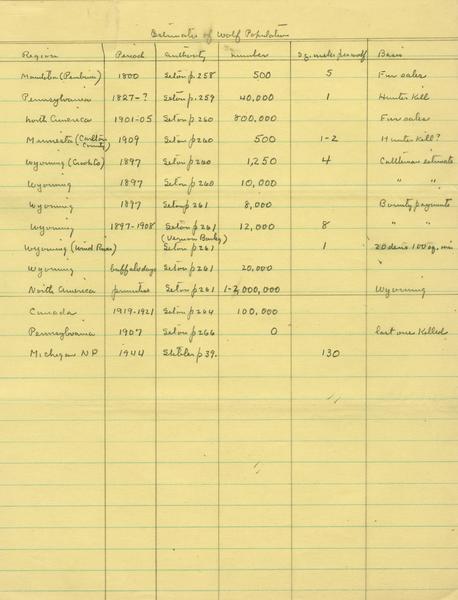 Estimates of Wolf Population
Region Period Authority Number Sq. miles per wolf Basis
Manitoba (Pembina) 1800 Seton p. 258 500 5 Fur sales
Pennsylvania 1827-? Seton p. 259 40,000 1 Hunter Kill
North America 1901-05 Seton p 260 800,000 Fur sales
Minnesota (Carlton County) 1909 Seton p 260 500 1-2 Hunter Kill?
Wyoming 1897 Seton p 260 1,250 4 Cattleman estimate
Wyoming 1897 Seton p 260 10,000 " "
Wyoming 1897 Seton p 261 8,000 Bounty payments
Wyoming 1897-1908 Seton p 261 12,000 8 " "
(Vernon Bailey)
Wyoming (Wind River) Seton p 261 1 20 dens 100 sq. mi
Wyoming buffalo days Seton p 261 20,000
North America primitive Seton p 261 1-2,000,000 Wyoming
Canada 1919-1921 Seton p 264 100,000
Pennsylvania 1907 Seton p 266 0 last one Killed
Michigan NP 1944 p 39. 130